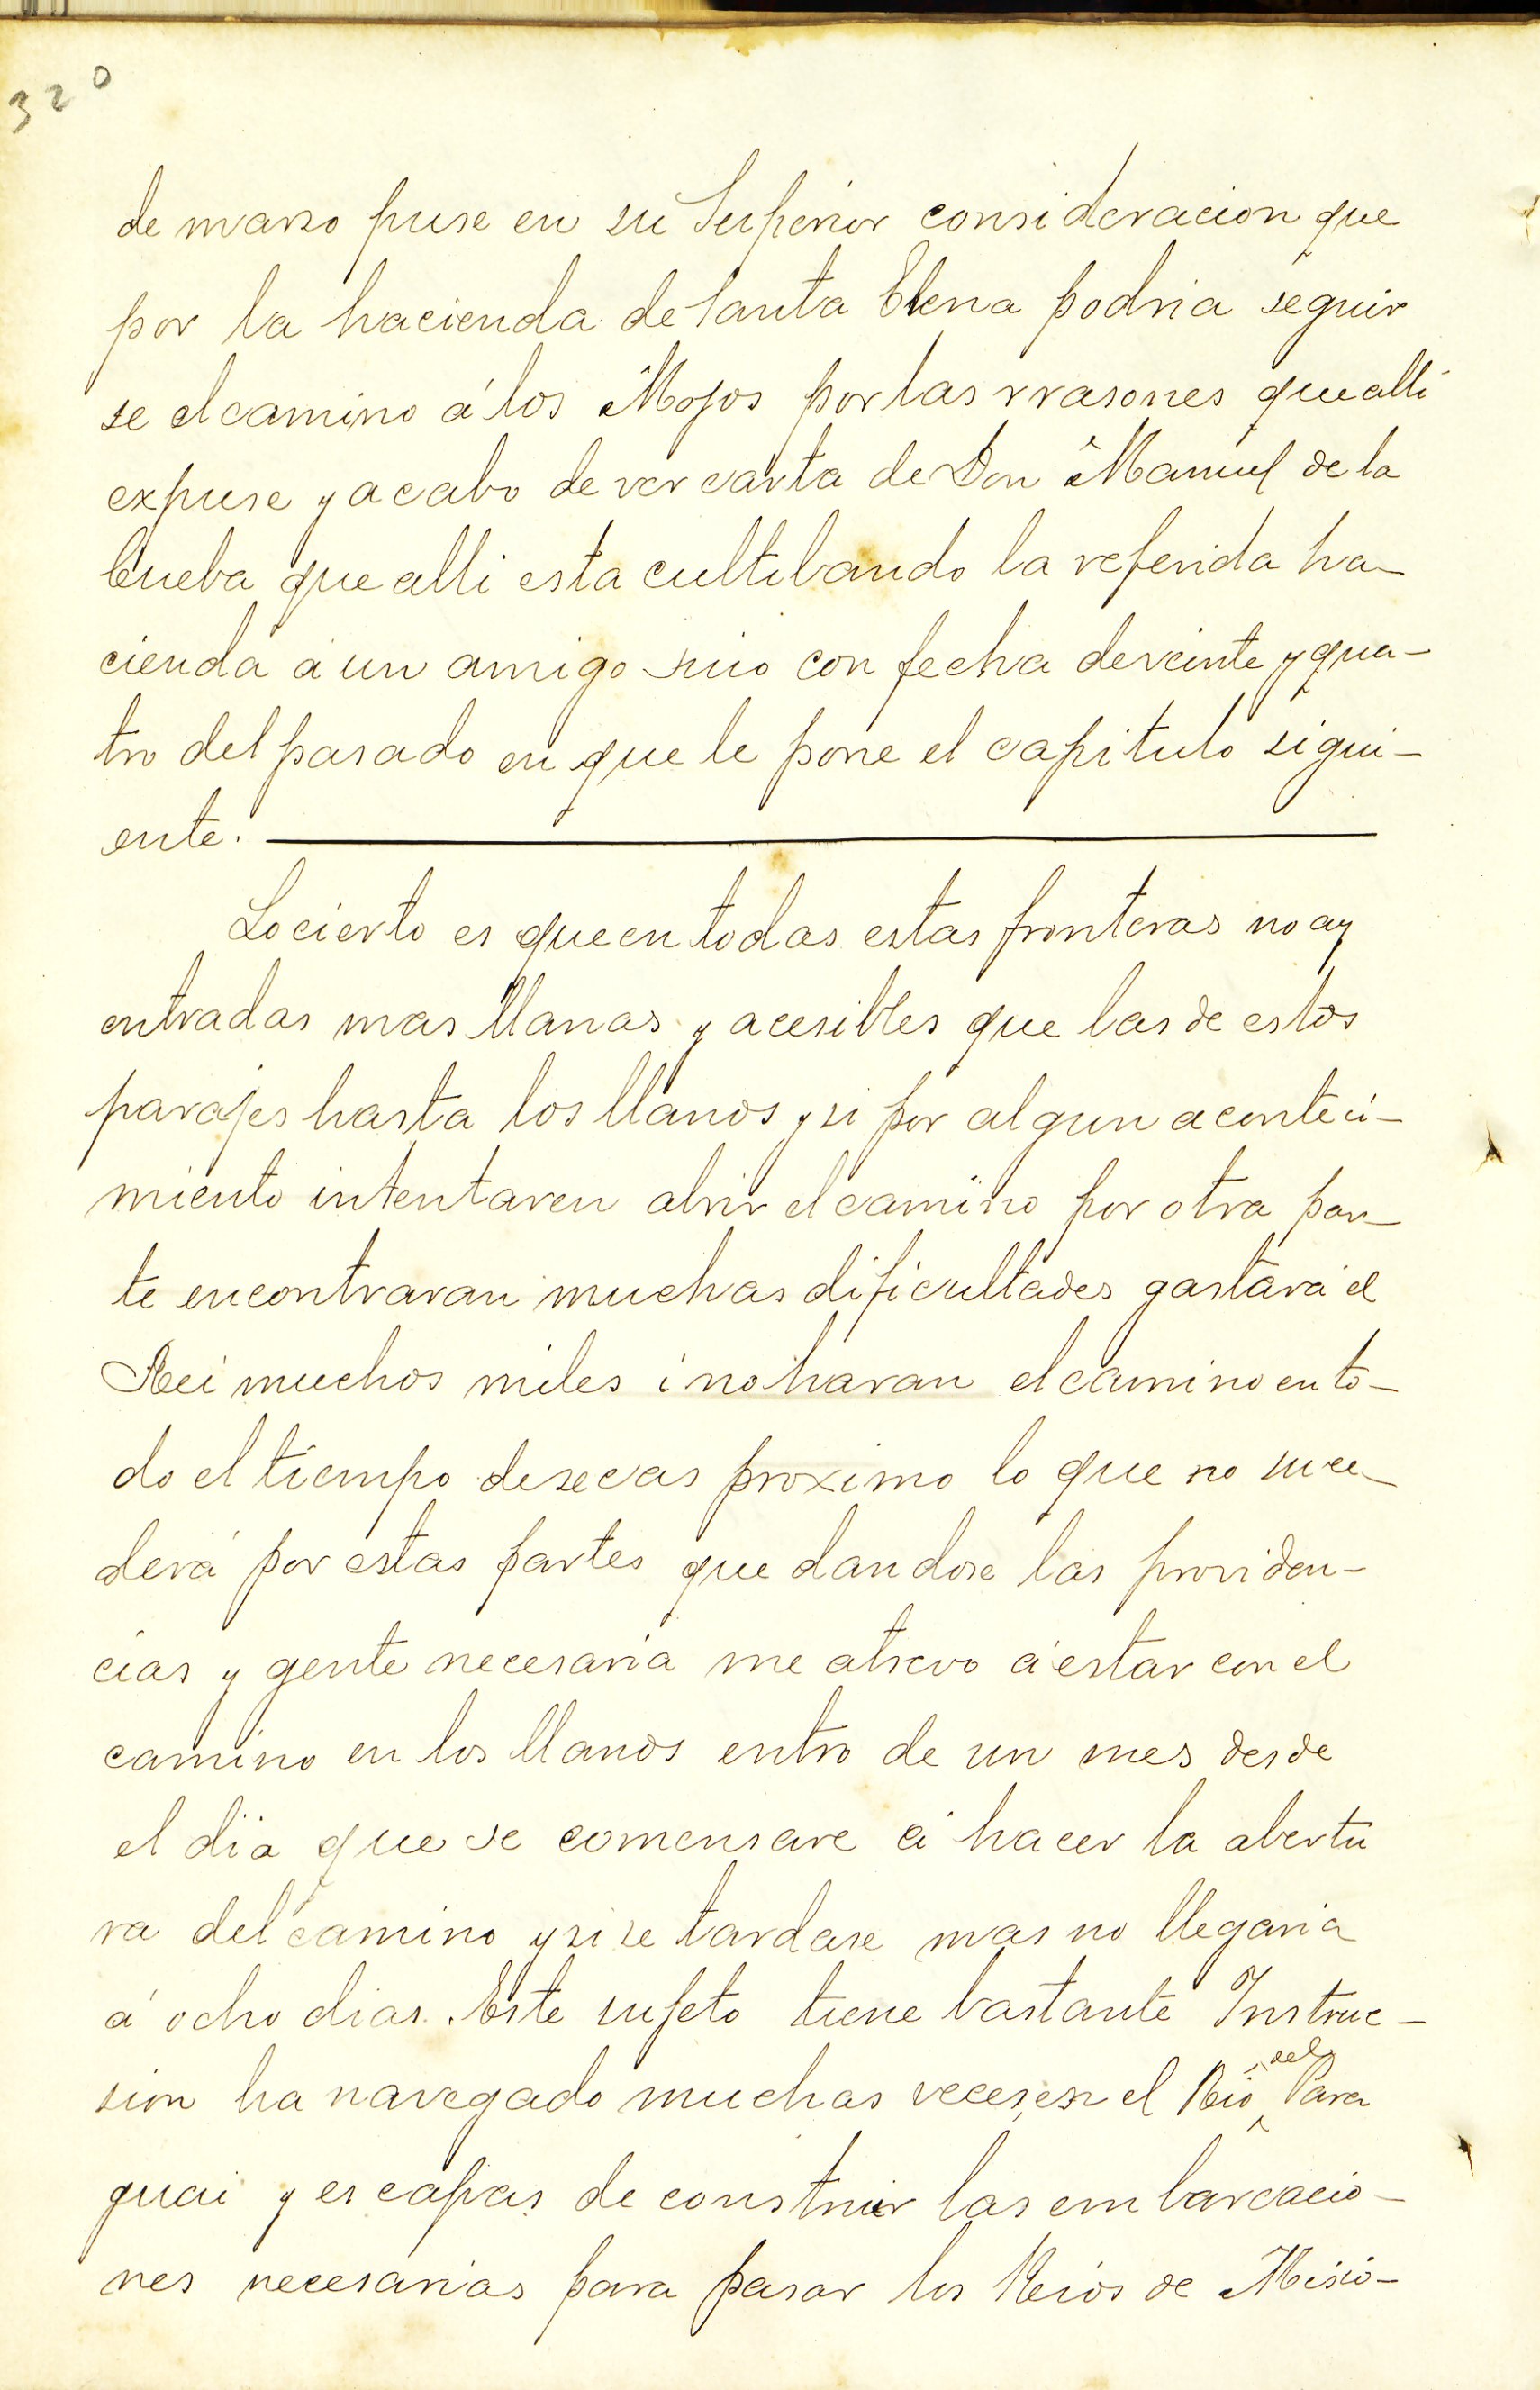 320
de marso puse en su Superior consideracion que
por la hacienda de Santa Elena podria seguir
se el camino á los Mojos por las rrasones que alli
expuse y acabo de ver carta de Don Manuel de la
Cueba que alli esta cultibando la referida ha-
cienda á un amigo mio con fecha de veinte y qua-
tro del pasado en que le pone el capitulo sigui-
ente.
Lo cierto es que en todas estas fronteras no ay
entradas mas llanas y acesibles que las de estos
parajes hasta los llanos y si por algun aconteci-
miento intentaren abrir el camino por otra par-
te encontraran muchas dificultades gastará el
Rei muchos miles i no haran el camino en to-
do el tiempo de secas proximo lo que no suce-
derá por estas partes que dandose las providen-
cias y gente necesaria me atrevo á estar con el
camino en los llanos entro de un mes desde
el dia que se comensare á hacer la abertu
ra del camino y si se tardase mas no llegaria
á ocho dias. Este sujeto tiene bastante Instruc-
sion ha navegado muchas veces en el Rio del Para
guai y es capas de construir las embarcacio-
nes necesarias para pasar los Rios de Misio-